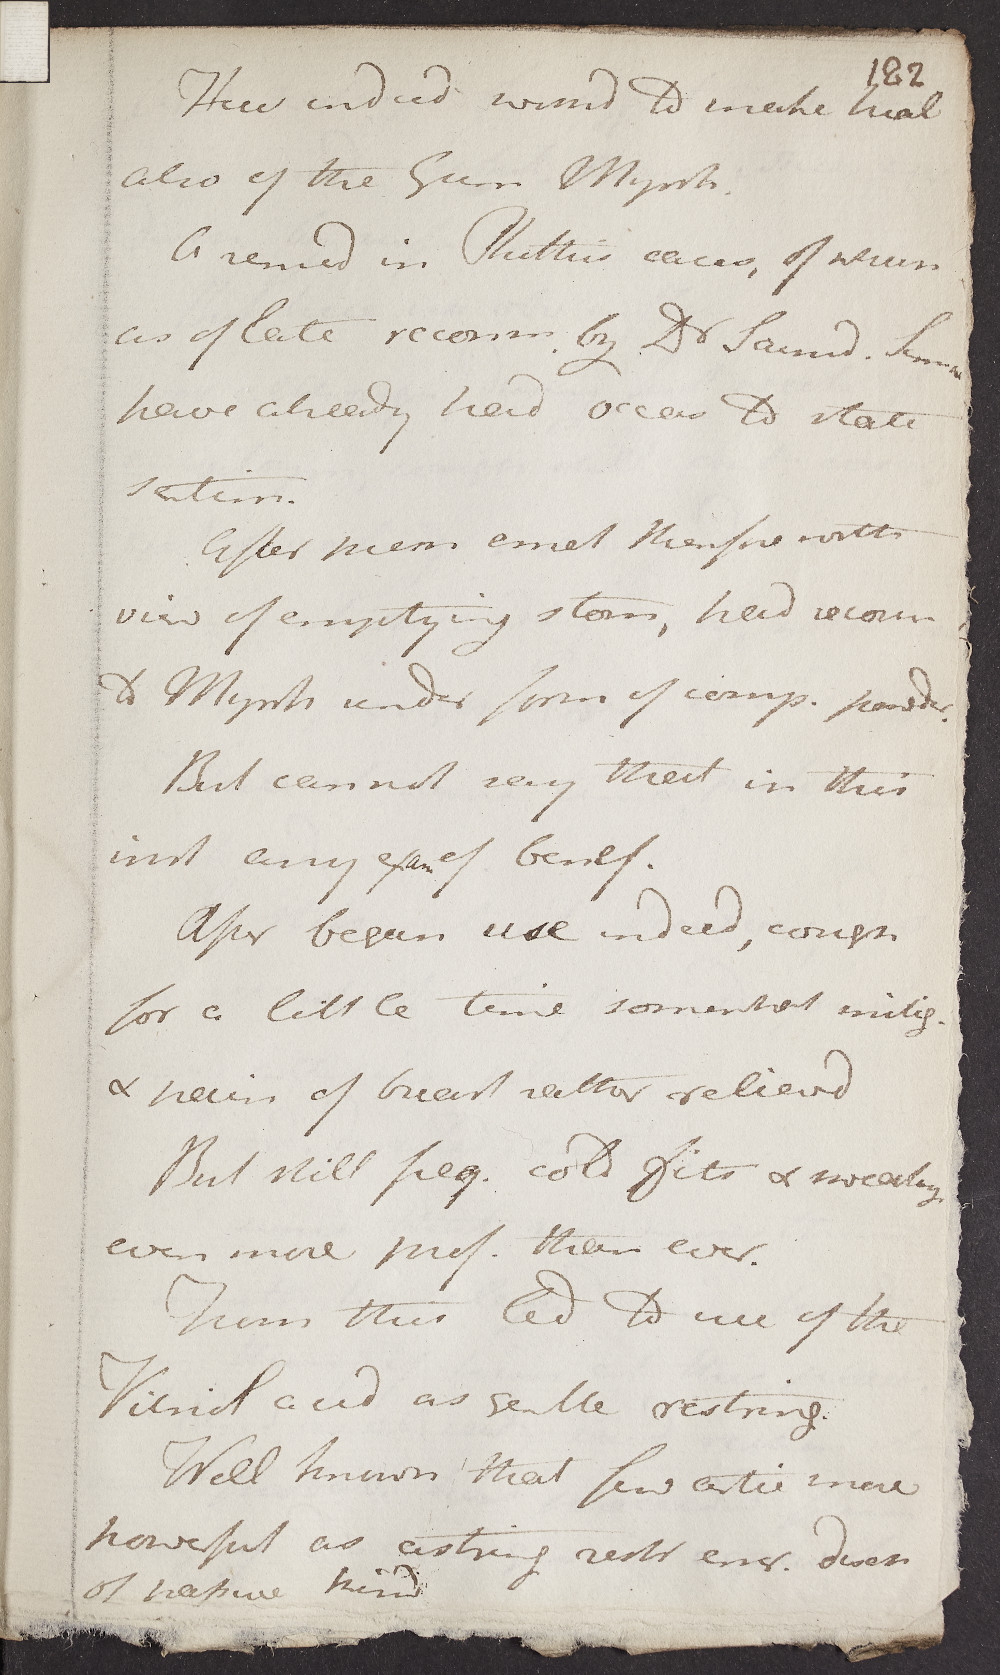 182
Here indeed wishd to make trial
also of the Gum Myrrh.
A remed in Phthis cases, of whim
as of late recomm. by Dr Saund. Simm
have already had occas to state
sentim.
After mem emet therefore with
view of emptying stom, had recour
to Myrrh under form of comp. powder.
But cannot say that in this
inst any exam of benef.
After began use indeed, cough
for a little time somewhat mitig.
& pain of breast rather relievd
But still freq. cold fits & sweating
even more prof. than ever.
From this led to use of the
Vitriol acid as gentle restring.
Well known that few artic more
powerful as astring restr ener. disch
of passive kind